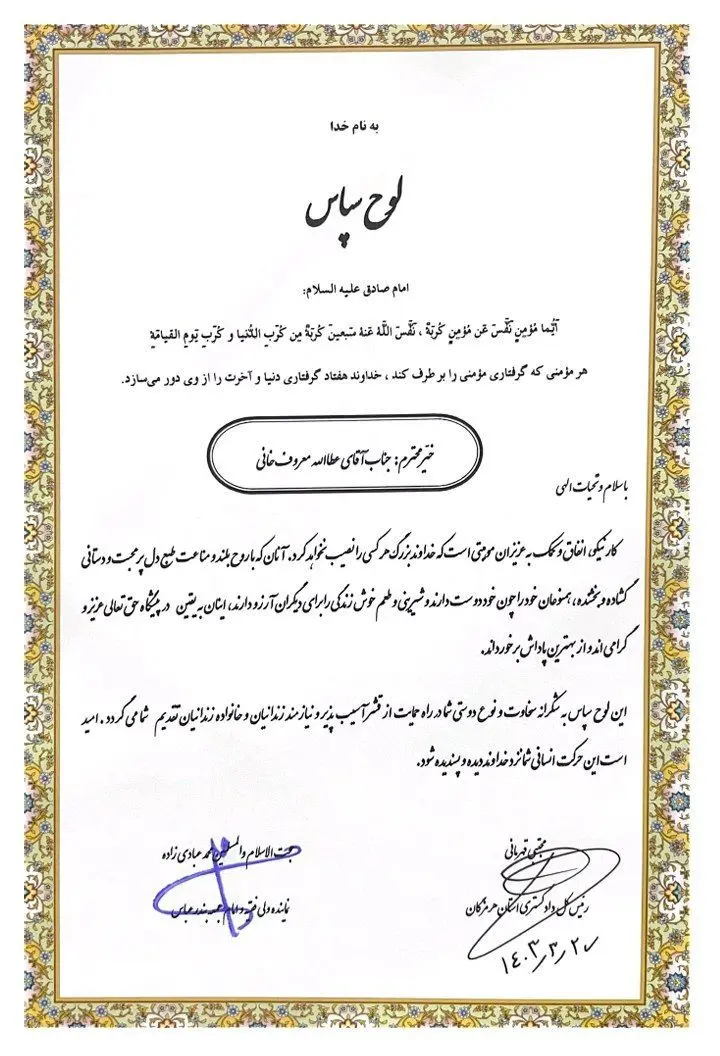 به نام خدا
لوح سپاس
امام صادق علیه السلام:
أیُّما مُؤمِنٍ نَفَّسَ عَن مُؤمِنٍ کُربَةً ، نَفَّسَ اللَّهُ عَنهُ سَبعینَ کُربَةً مِن کُرَبِ الدُّنیا و کُرَبِ یَومِ القیامَةِ
هر مؤمنی که گرفتاری مؤمنی را بر طرف کند ، خداوند هفتاد گرفتاری دنیا و آخرت را از وی دور می‌سازد.
خیّر محترم: جناب آقای عطاالله معروف خانی
باسلام و تحیات الهی
کار نیکو، انفاق و کمک به عزیزان موهبتی است که خداوند بزرگ هر کسی را نصیب نخواهد کرد. آنان که با روح بلند و مناعت طبع دل پر محبت و دستانی
گشاده و بخشنده، همنوعان خود را چون خود دوست دارند و شیرینی و طعم خوش زندگی را برای دیگران آرزو دارند، اینان به یقین در پیشگاه حق تعالی عزیز و
گرامی اند و از بهترین پاداش برخورداند.
این لوح سپاس به شکرانه سخاوت و نوع دوستی شما در راه حمایت از قشر آسیب پذیر و نیازمند زندانیان و خانواده زندانیان تقدیم شما می گردد . امید
است این حرکت انسانی شما نزد خداوند دیده و پسندیده شود.
مجتبی قهرمانی
رئیس کل دادگستری استان هرمزگان
۱۴۰۳/۳/۲۰
حجت الاسلام والمسلمین محمد عبادی زاده
نماینده ولی فقیه و امام جمعه بندرعباس